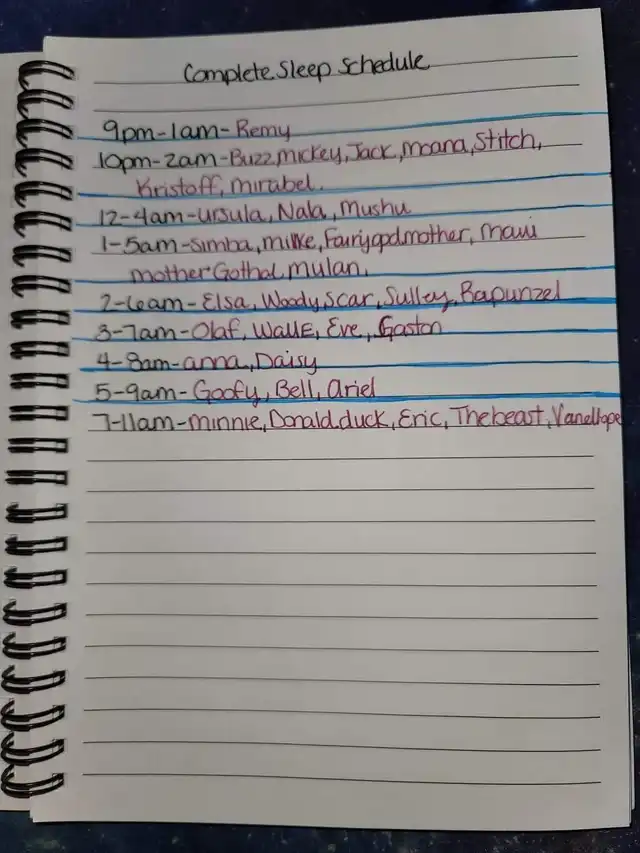 Complete Sleep Schedule
9pm-1am-Remy
10pm-2am-Buzz, mickey, Jack, moana, Stitch,
Kristoff, mirabel.
12-4am-ursula, Nala, mushu
1-5am-simba, mike, Fairygodmother, maui
mother Gothal, mulan.
2-6am-Elsa, Woody, scar, Sulley, Rapunzel
3-7am-Olaf, WallE, Eve, Gaston
4-8am-anna, Daisy
5-9am-Goofy, Bell, ariel
7-11am-minnie, Donald.duck, Eric, Thebeast, Vanellope